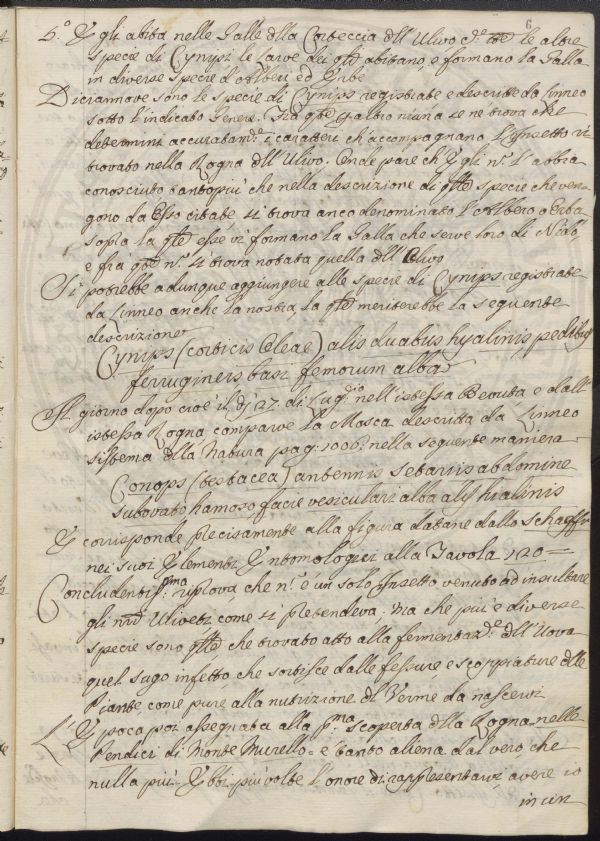 6
5.° Egli abita nelle Galle della Corteccia dell'Ulivo le altre
specie di Cynipi le larve dei qti abitano, e formano la Galla
in diverse specie d'Alberi ed Erbe
Diciannove sono le specie di Cynips registrate e descritte da Linneo
sotto l'indicato Genere. Fra qte Galbio niuna se ne trova che
determini accuratam.e i caratteri ch'accompagnano l'Insetto ri
trovato nella Rogna dell'Ulivo. Onde pare ch'Egli n. l'abbia
conosciuto tanto più che nella descrizione di qtte specie che ven
gono da Esso citate, si trova anco denominato l'Albero o Erba
sopra la qle esse vi formano la Galla che serve loro di Nido,
e frà qte n. si trova notata quella dell'Ulivo
Si potrebbe adunque aggiungere alle specie di Cynips registrate
da Linneo anche la nostra la qle meriterebbe la seguente
descrizione
Cynips (corticis Oleae) alis duabus hyalinis pedibus
ferrugineis basi femorum alba
Il giorno dopo cioè il dì 27. di Lug.io nell'istessa Bevuta e dall'
istessa Rogna comparve la Mosca descritta da Linneo
sistema della Natura pag: 1006. nella seguente maniera
Conops (testacea) antennis setariis abdomine
subovato hamoso facie vesiculari alba alis hialinis
E corrisponde precisamente alla figura datane dallo Schaeffer
nei suoi Elementi Entomologici alla Tavola 120=
Concludenti.ma riprova, che n. è un solo Insetto venuto ad insultare
gli nri Uliveti come si pretendeva; Ma che più e diverse
specie sono qlle che trovato atto alla fermentaz.e dell'Uova
quel sugo infetto che sortisce dalle fessure, e scoppiature delle
Piante, come pure alla nutrizione del Verme da nascervi
L'Epoca poi assegnata alla p.ma scoperta della Rogna, nelle
Pendici di Monte Murello= e tanto aliena dal vero, che
nulla più. Ebbi più volte l'onore di rappresentarvi avere io
in cir